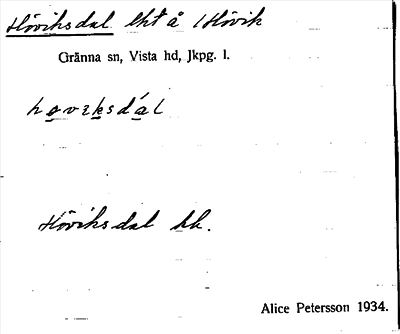 Höviksdal lht å Hövik
Gränna sn, Vista hd, Jkpg. l.
Höviksdal hk.
Alice Petersson 1934.